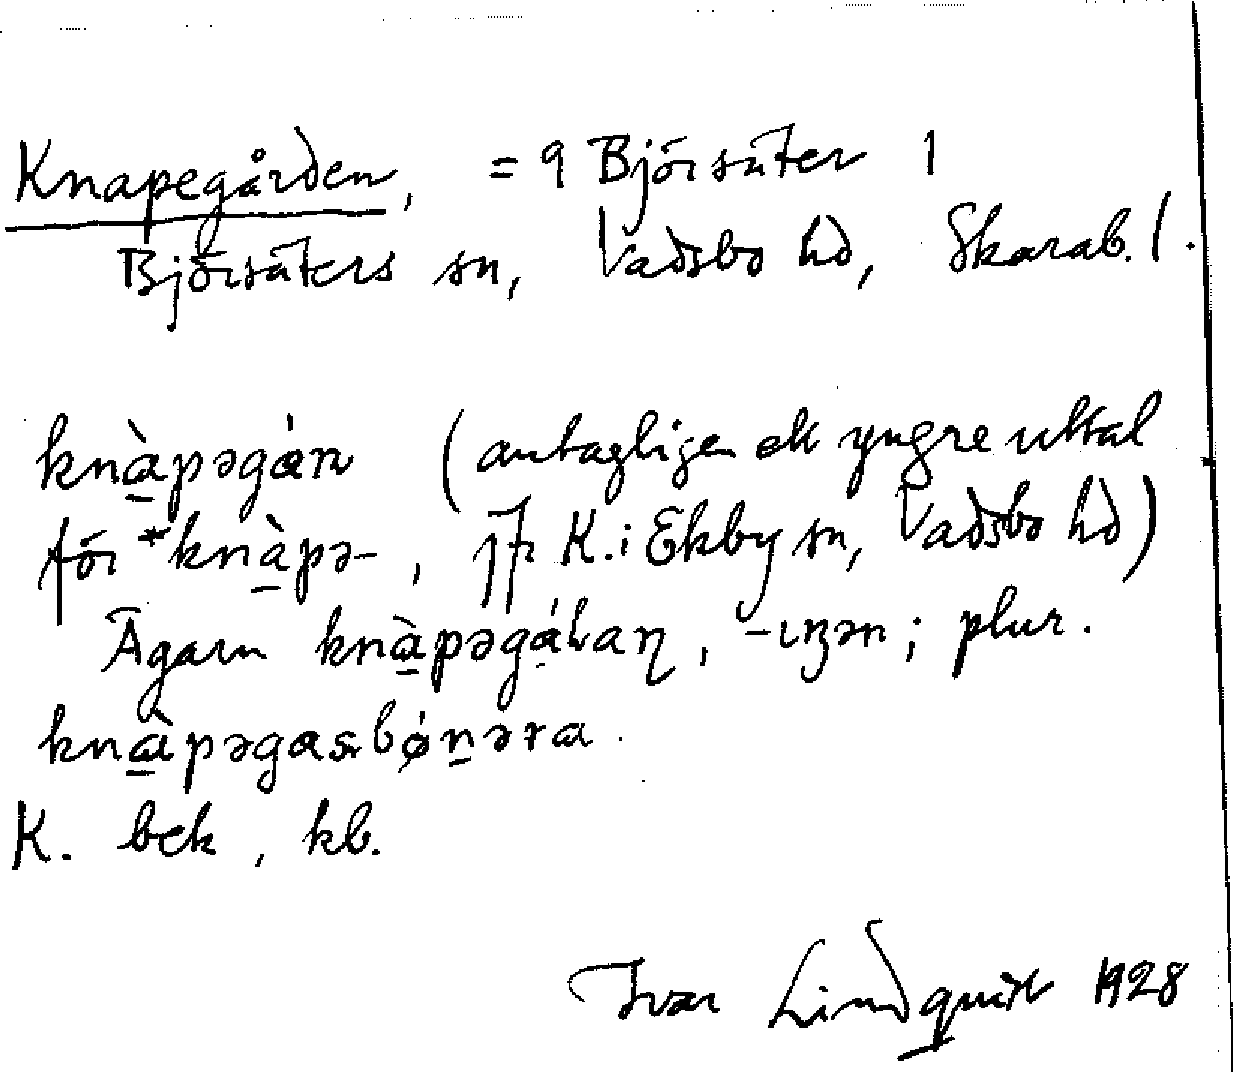 Knapegården, = 9 Björsäter 1
Björsäters sn, Vadsbo hd, Skarab. l.
knàpəgán (antagligen ett yngre uttal
för *knàpə-, jfr K. i Ekby sn, Vadsbo hd)
Ägarn knàpəgáɫaɳ, -ɩŋən; plur.
knàpəgasbǿnəra.
K. bek, kb.
Ivar Lindquist 1928